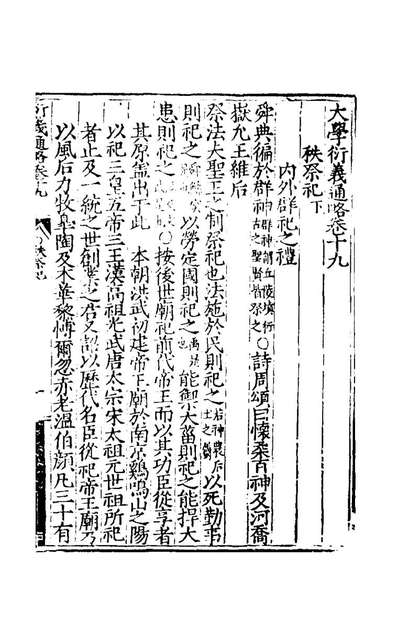 大學衍義通略卷十九
秩祭祀下
內外群祀之禮
舜典徧於群神群神謂丘陵墳衍古之聖賢皆祭之○詩周頌曰懷柔百神及河喬
嶽允王維后
祭法大聖王之制祭祀也法施於民則祀之若神農后土之類以死勤事
則祀之以勞定國則祀之能御大菑則祀之能捍大
患則祀之○按後世廟祀前代帝王而以其功臣從享者
其原蓋出于此 本朝洪武初建帝王廟於南京雞鳴山之陽
以祀三皇五帝三王漢高祖光武唐太宗宋太祖元世祖所祀
者止及一統之世創業之君又詔以歷代名臣從祀帝王廟乃
以風后力牧皐陶及木華黎博爾忽赤老溫伯顏凡三十有
衍義通略卷十九
秩祭祀
一